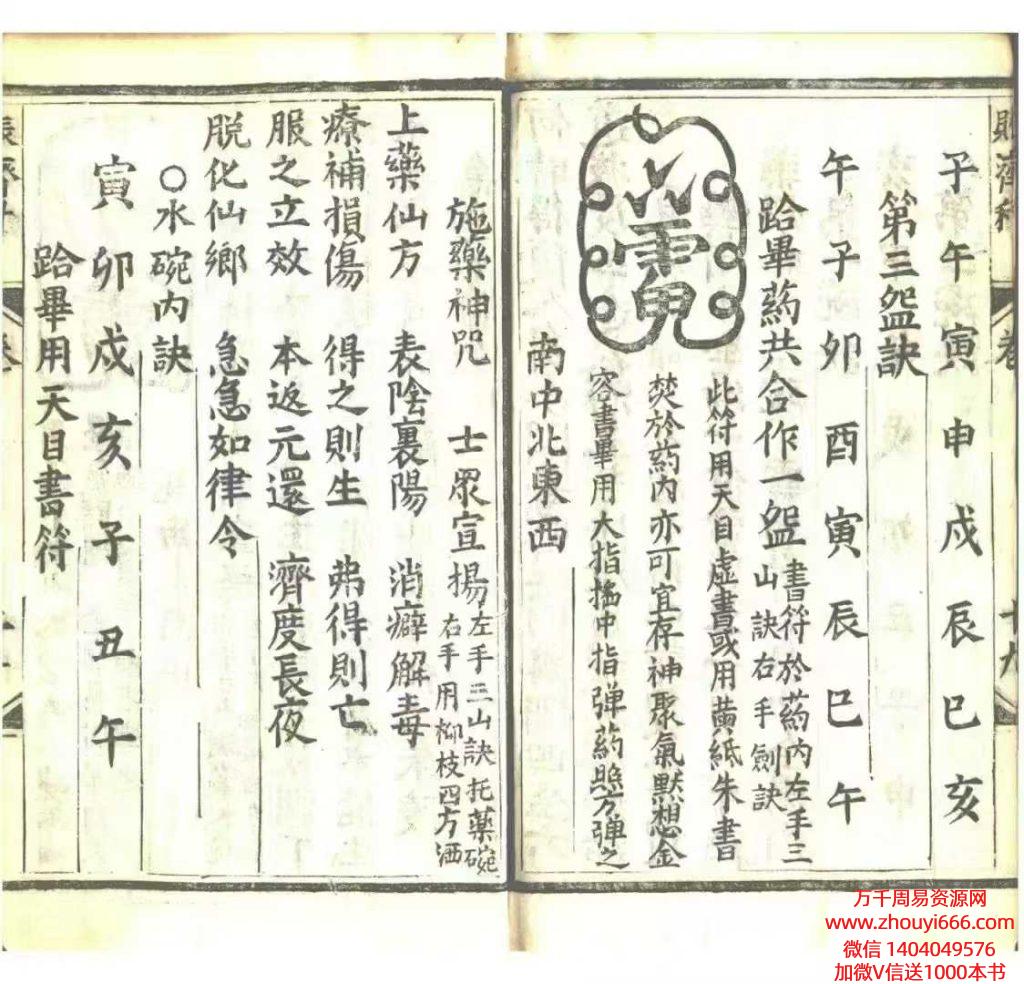 子午寅申戌辰巳亥
第三盌訣
午子卯酉寅辰巳午
跲畢葯共合作一盌
書符於葯內左手三
山訣右手劍訣
此符用天目虛書或用黃紙朱書
焚於葯內亦可宜存神聚氣默想金
容書畢用大指搯中指弹葯照方弹之
南中北東西
卷
十九
施藥神咒 士眾宣揚
左手三山訣托藥碗
右手用柳枝四方洒
上藥仙方 表陰裏陽 消癖解毒
療補損傷 得之則生 弗得則亡
服之立效 本返元還 濟度長夜
脱化仙鄉 急急如律令
○水碗內訣
寅卯戌亥子丑午
跲畢用天目書符
万千周易资源网
www.zhouyi666.com
微信 1404049576
加微V信送1000本书